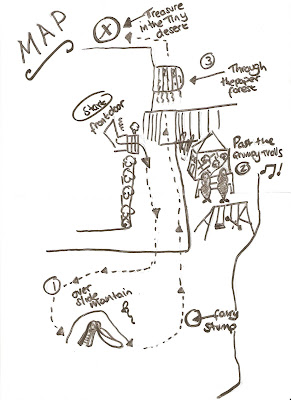 MAP
X
Treasure
in the Tiny
desert
3
Through
the paper
forest
Start
front door
Past the
Grumpy Trolls
2
1
over
slide
mantain
fairy
Stump